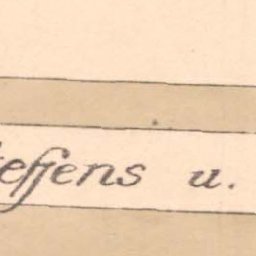 effens u.